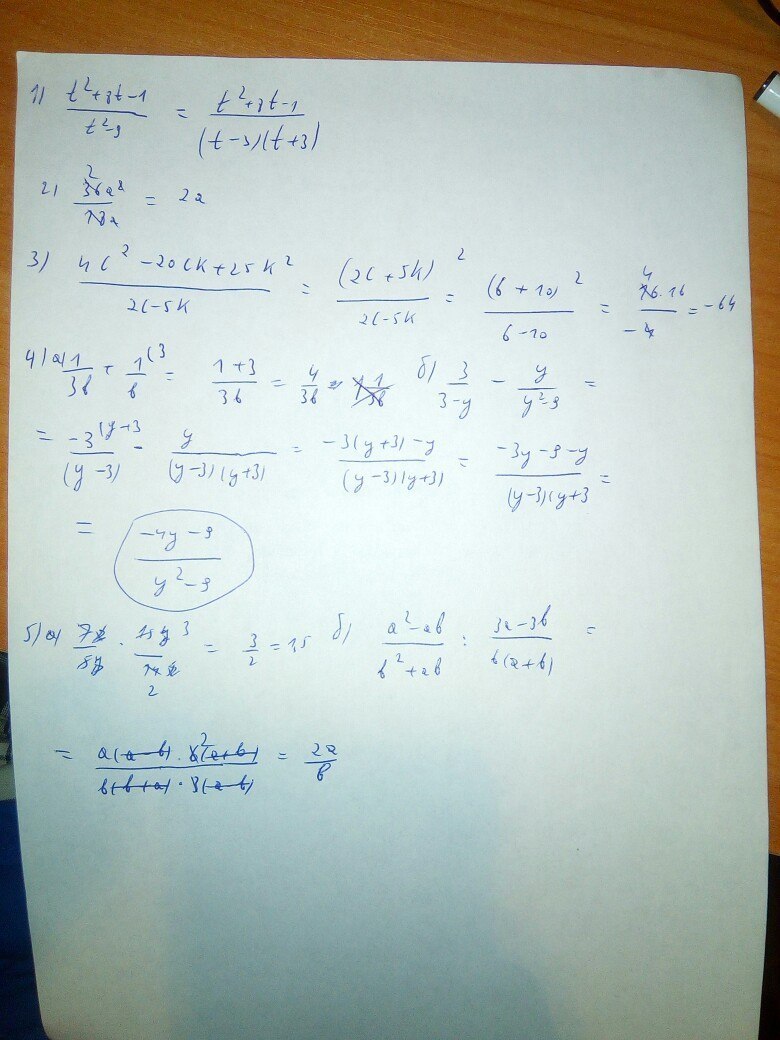 1) (t²+3t-1)/(t²-9) = (t²+3t-1)/((t-3)(t+3))
2) 36a²/18a = 2a
2
3) (4c²-20ck+25k²)/(2c-5k) = (2c+5k)²/(2c-5k) = (6+10)²/(6-10) = 16·16/-4 = -64
4
4) а) 1/3b + 1/b (3 = (1+3)/3b = 4/3b = б) 3/(3-y) - y/(y²-9) =
= -3/(y-3) (y+3 - y/((y-3)(y+3)) = (-3(y+3)-y)/((y-3)(y+3)) = (-3y-9-y)/((y-3)(y+3 =
= (-4y-9)/(y²-9)
5) а) 7x/5y · 15y 3/14x 2 = 3/2 = 1.5 б) (a²-ab)/(b²+ab) : (3a-3b)/(6(a+b)) =
= (a(a-b)·6²(a+b))/(b(b+a)·3(a-b)) = 2a/b